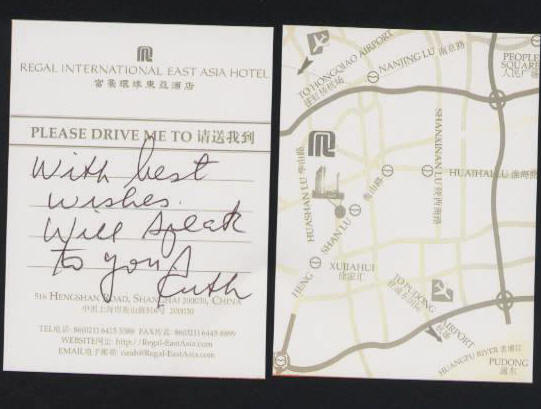 REGAL INTERNATIONAL EAST ASIA HOTEL
富豪環球東亞酒店
PLEASE DRIVE ME TO 请送我到
With best
wishes.
Will speak
to you
Ruth
516 HENGSHAN ROAD, SHANGHAI 200030, CHINA
中国上海市衡山路516号 200030
TEL电话: 86(021) 6415 5588 FAX传真: 86(021) 6445 8899
WEBSITE网址: http://Regal-EastAsia.com
EMAIL电子邮箱: @Regal-EastAsia.com
TO HONGQIAO AIRPORT
往虹桥机场
NANJING LU 南京路
PEOPLE
SQUARE
人民广场
SHANXINAN LU 陕西南路
HUAIHAI LU 淮海路
HUASHAN LU 华山路
HENG SHAN LU 衡山路
XUJIAHUI
徐家汇
TO PUDONG AIRPORT
往浦东国际机场
HUANGPU RIVER 黄浦江
PUDONG
浦东